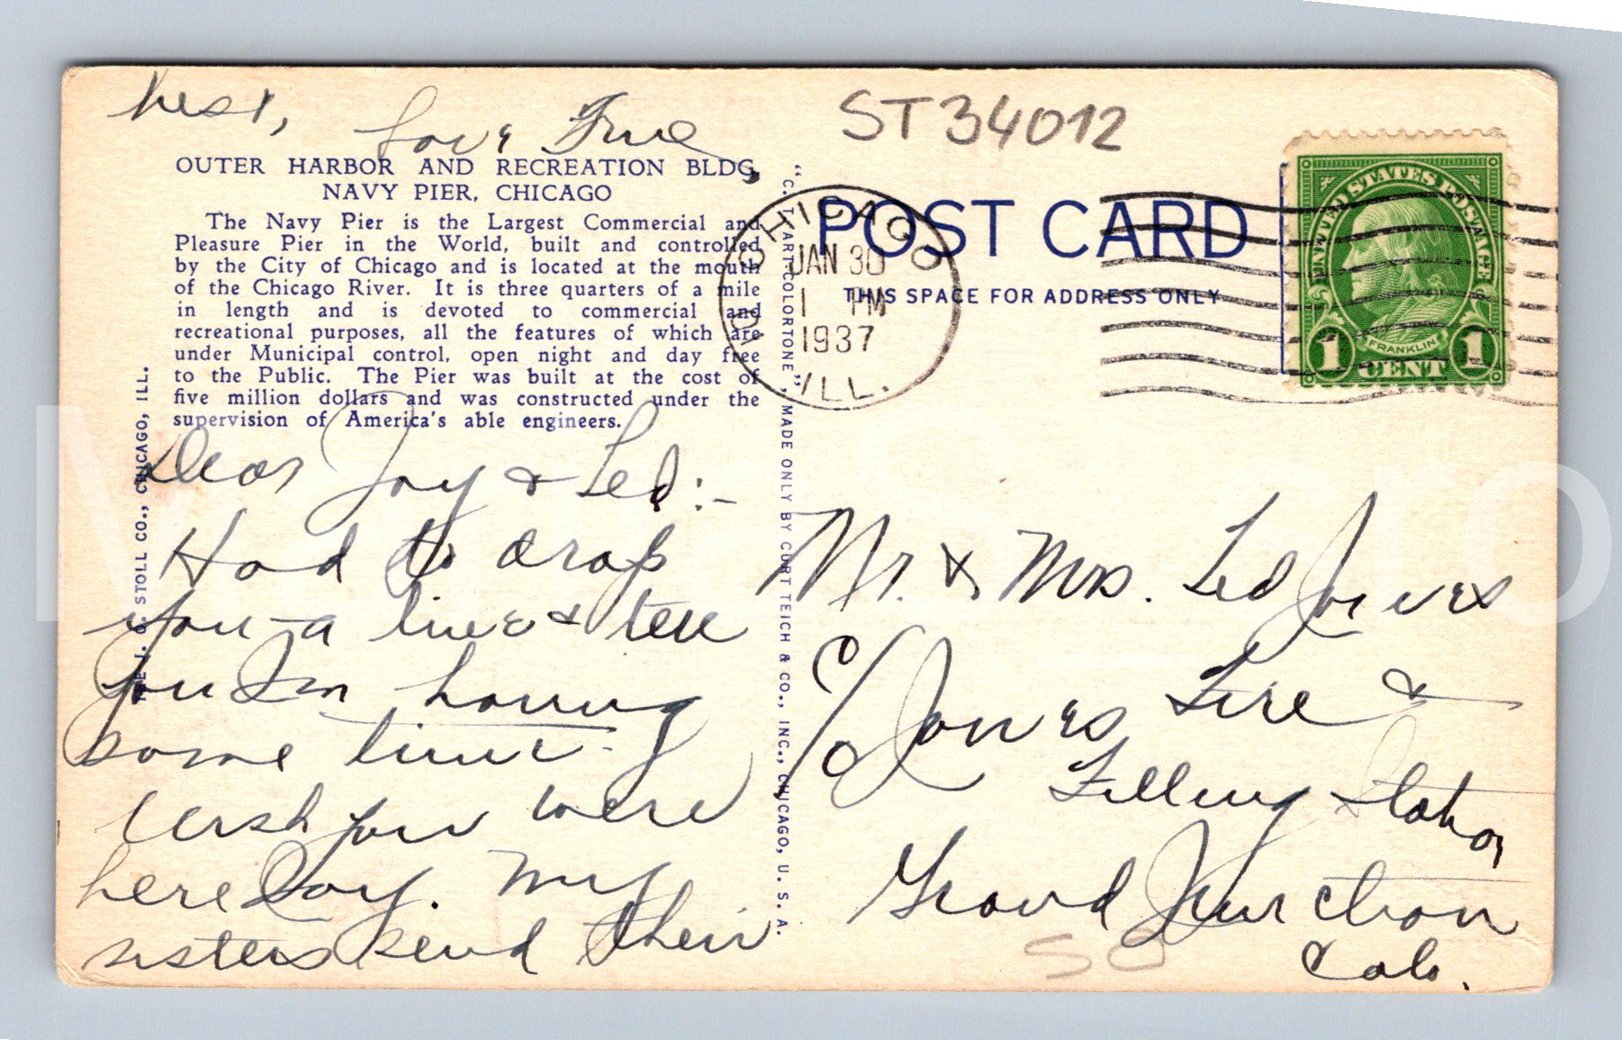 best,
Love True
ST34012
OUTER HARBOR AND RECREATION BLDG,
NAVY PIER, CHICAGO
The Navy Pier is the Largest Commercial and
Pleasure Pier in the World, built and controlled
by the City of Chicago and is located at the mouth
of the Chicago River. It is three quarters of a mile
in length and is devoted to commercial and
recreational purposes, all the features of which are
under Municipal control, open night and day free
to the Public. The Pier was built at the cost of
five million dollars and was constructed under the
supervision of America's able engineers.
J. O. STOLL CO., CHICAGO, ILL.
Dear Joy & Ted:-
Had to drop
you a line & tell
you Im having
some time.
Wish you were
here Joy. My
sisters send their
"C. T. ART-COLORTONE", MADE ONLY BY CURT TEICH & CO., INC., CHICAGO, U. S. A.
POST CARD
THIS SPACE FOR ADDRESS ONLY
CHICAGO
JAN 30
1 PM
1937
ILL.
UNITED STATES POSTAGE
FRANKLIN
1 CENT 1
Mr. & Mrs. Ted Jones
c/o Jones Tire &
Filling Station
Grand Junction
Colo.
50